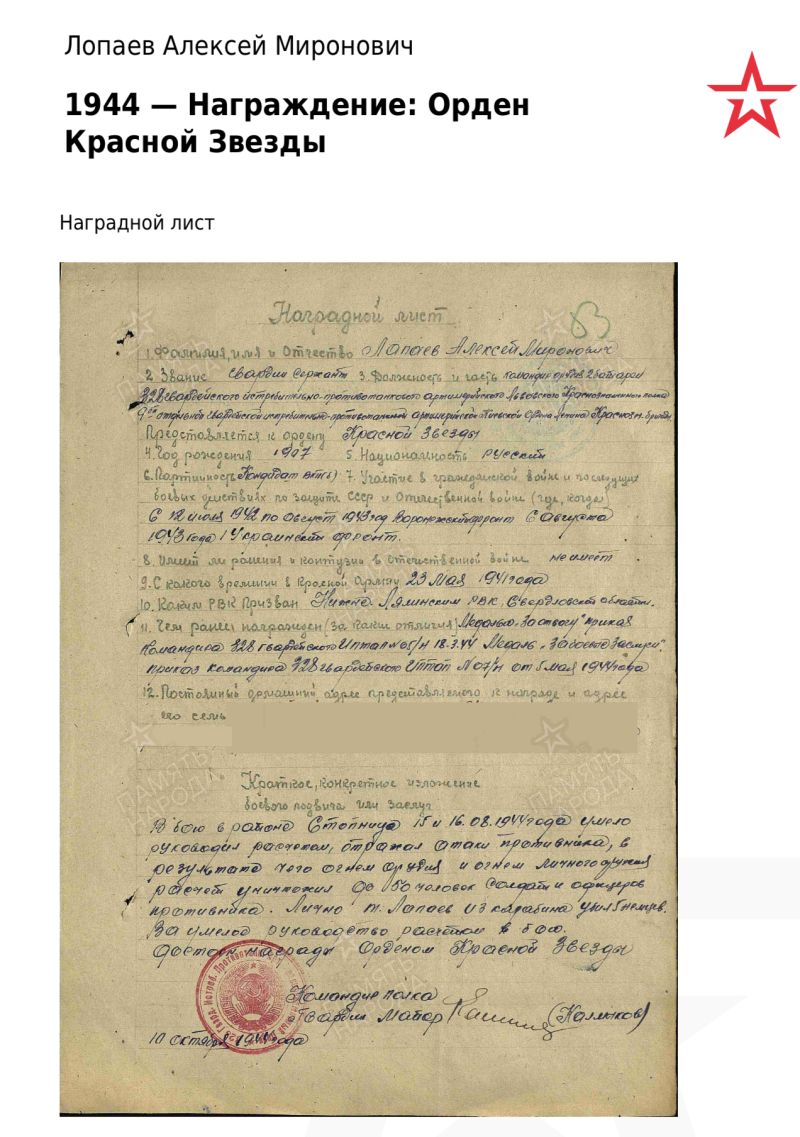 Лопаев Алексей Миронович
1944 — Награждение: Орден
Красной Звезды
Наградной лист
Наградной лист
1. Фамилия, имя и Отчество Лапаев Алексей Миронович
2. Звание Гвардии Сержант 3. Должность и часть командир орудия 2 батареи
328 гвардейского истребительно-противотанкового артиллерийского Львовского Краснознаменного полка
9ой отдельной гвардейской истребительно-противотанковой артиллерийской Ордена Ленина Краснозн. бригады
Представляется к ордену Красной Звезды
4. Год рождения 1907 5. Национальность русский
6. Партийность Кандидат ВКП(б) 7. Участие в гражданской войне и последующих
боевых действиях по защите СССР и Отечественной войне (где, когда)
С 12 июля 1942 по Август 1943 год Воронежский фронт С Августа
1943 года 1 Украинский фронт.
8. Имеет ли ранения и контузии в отечественной войне не имеет
9. С какого времени в Красной Армии 23 Мая 1941 года
10. Каким РВК Призван Нижне-Лялинским РВК, Свердловской области.
11. Чем ранее награжден (за какие отличия) Медалью „За отвагу" приказ
Командира 328 гвардейского ИПТАП № 05/н 18.3.44 Медаль „За боевые заслуги"
приказ командира 328 гвардейского ИПТАП № 07/н от 5 мая 1944 года
12. Постоянный домашний адрес представляемого к награде и адрес
его семьи
Краткое, конкретное изложение
боевого подвига или заслуг
В бою в районе Стопница 15 и 16.08.1944 года умело
руководил расчетом, отражал атаки противника, в
результате чего огнем орудия и огнем личного оружия
расчет уничтожил до 50 человек солдат и офицеров
противника. Лично т. Лапаев из карабина убил 5 немцев.
За умелое руководство расчетом в бою.
достоин награды Орденом Красной Звезды
Командир полка
Гвардии Майор (Калмыков)
10 октября 1944 года
ПАМЯТЬ
НАРОДА